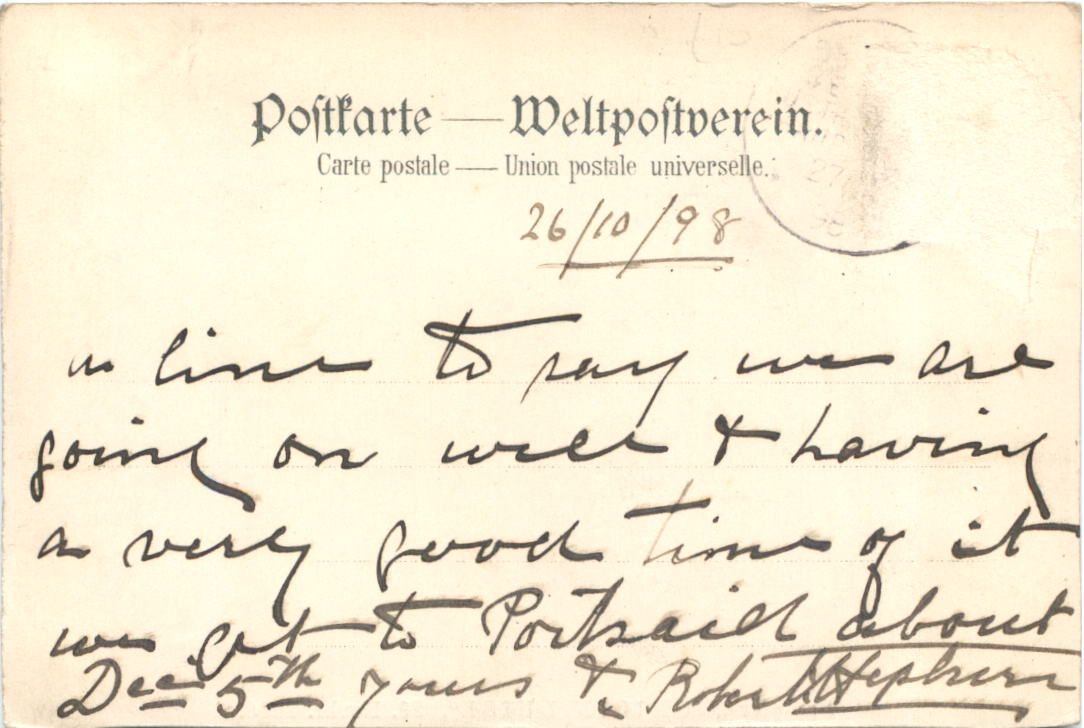 Postkarte — Weltpostverein.
Carte postale — Union postale universelle.
27
26/10/98
a line to say we are
going on well & having
a very good time of it
we get to Portsaid about
Dec 5th yours &c Robert Hepburn